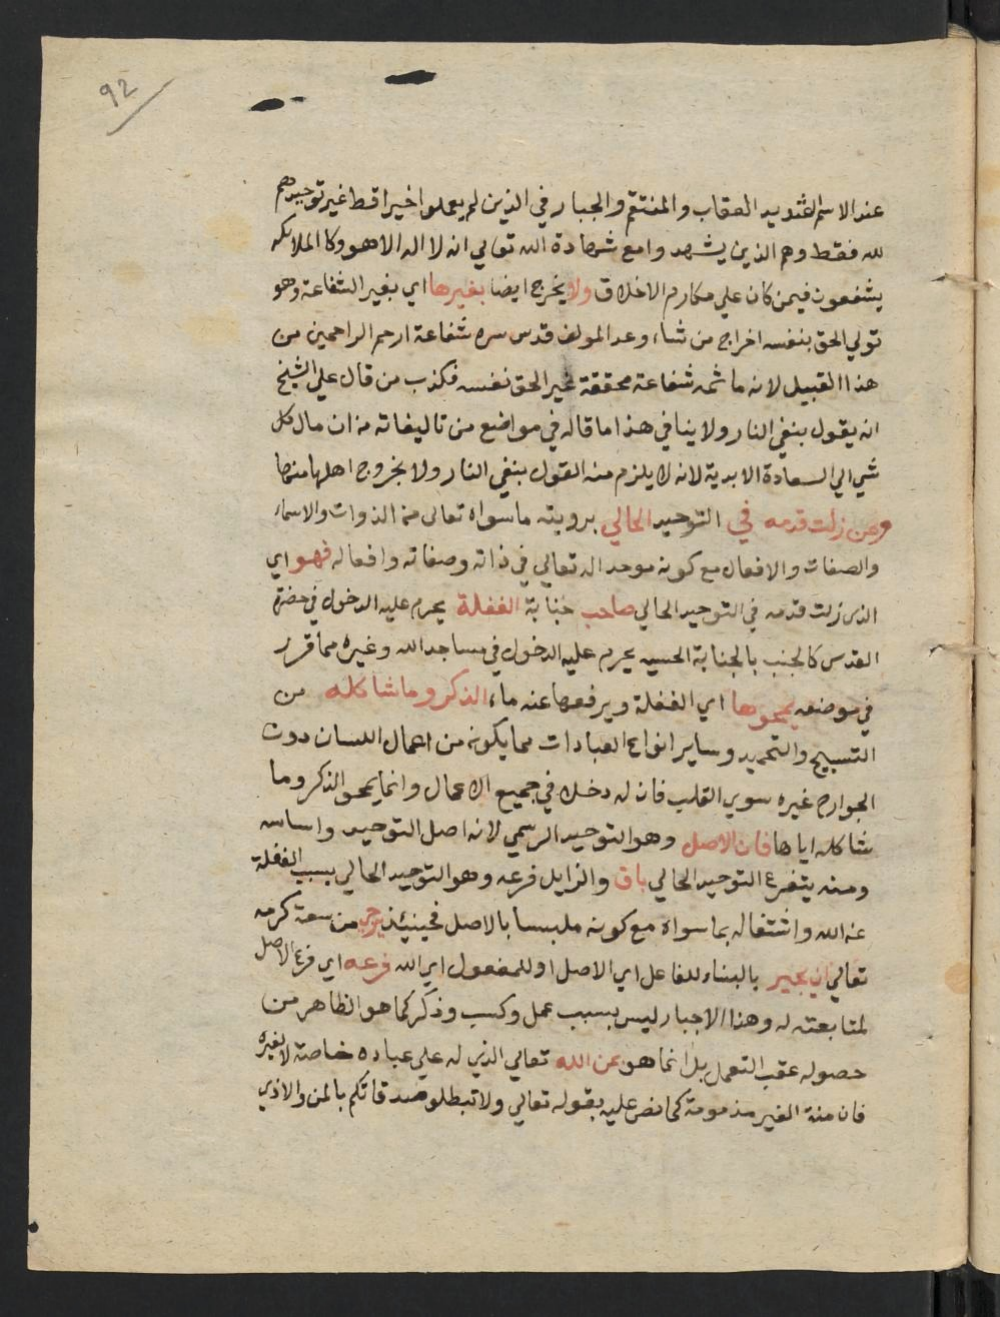 92
عند الاسم الشديد العقاب والمنتقم والجبار في الذين لم يعملوا خيرا قط غير توحيدهم
لله فقط وهم الذين يشهدوا مع شهادة الله تعالي انه لا اله الا هو وكا الملائكه
يشفعون فيمن كان علي مكارم الاخلاق ولا يخرج ايضا بغيرها اي بغير الشفاعة وهو
تولي الحق بنفسه اخراج من شاء وعد المولف قدس سره شفاعة ارحم الراحمين من
هذا القبيل لانه ما ثمه شفاعة محققة لغير الحق نفسه فكذب من قال علي الشيخ
انه يقول بنفي النار ولا ينافي هذا ما قاله في مواضع من تاليفاته من ان مال كل
شي الي السعادة الابدية لانه لا يلزم منه القول بنفي النار ولا بخروج اهلها منها
ومن زلت قدمه في التوحيد الحالي برويته ما سواه تعالى من الذوات والاسماء
والصفات والافعال مع كونه موحد اله تعالي في ذاته وصفاته وافعاله فهو اي
الذي زلت قدمه في التوحيد الحالي صاحب جنابة الغفلة يحرم عليه الدخول في حضرة
القدس كالجنب بالجنابة الحسيه يحرم عليه الدخول في مساجد الله وغيره مما قرر
في موضعه يمحوها اي الغفلة ويرفعها عنه ماء الذكر وما شاكله من
التسبيح والتحميد وساير انواع العبادات مما يكون من اعمال اللسان دون
الجوارح غيره سوي القلب فان له دخلا في جميع الاعمال وانما يمحو الذكر وما
شاكله اياها فان الاصل وهو التوحيد الرسمي لانه اصل التوحيد واساسه
ومنه يتفرع التوحيد الحالي باق والزايل فرعه وهو التوحيد الحالي بسبب الغفلة
عن الله واشتغاله بما سواه مع كونه ملبسا بالاصل فحينئذ يرجى من سعة كرمه
تعالي ان يجبر بالبناء للفاعل اي الاصل او للمفعول اي الله فرعه اي فرع الاصل
لمتابعته له وهذا الاجبار ليس بسبب عمل وكسب وذكر كما هو الظاهر من
حصوله عقب التعمل بل انما هو بمن الله تعالي الذي له علي عباده خاصة لا لغيره
فان منة الغير مذمومة كما نص عليه بقوله تعالي ولا تبطلوا صدقاتكم بالمن والاذي